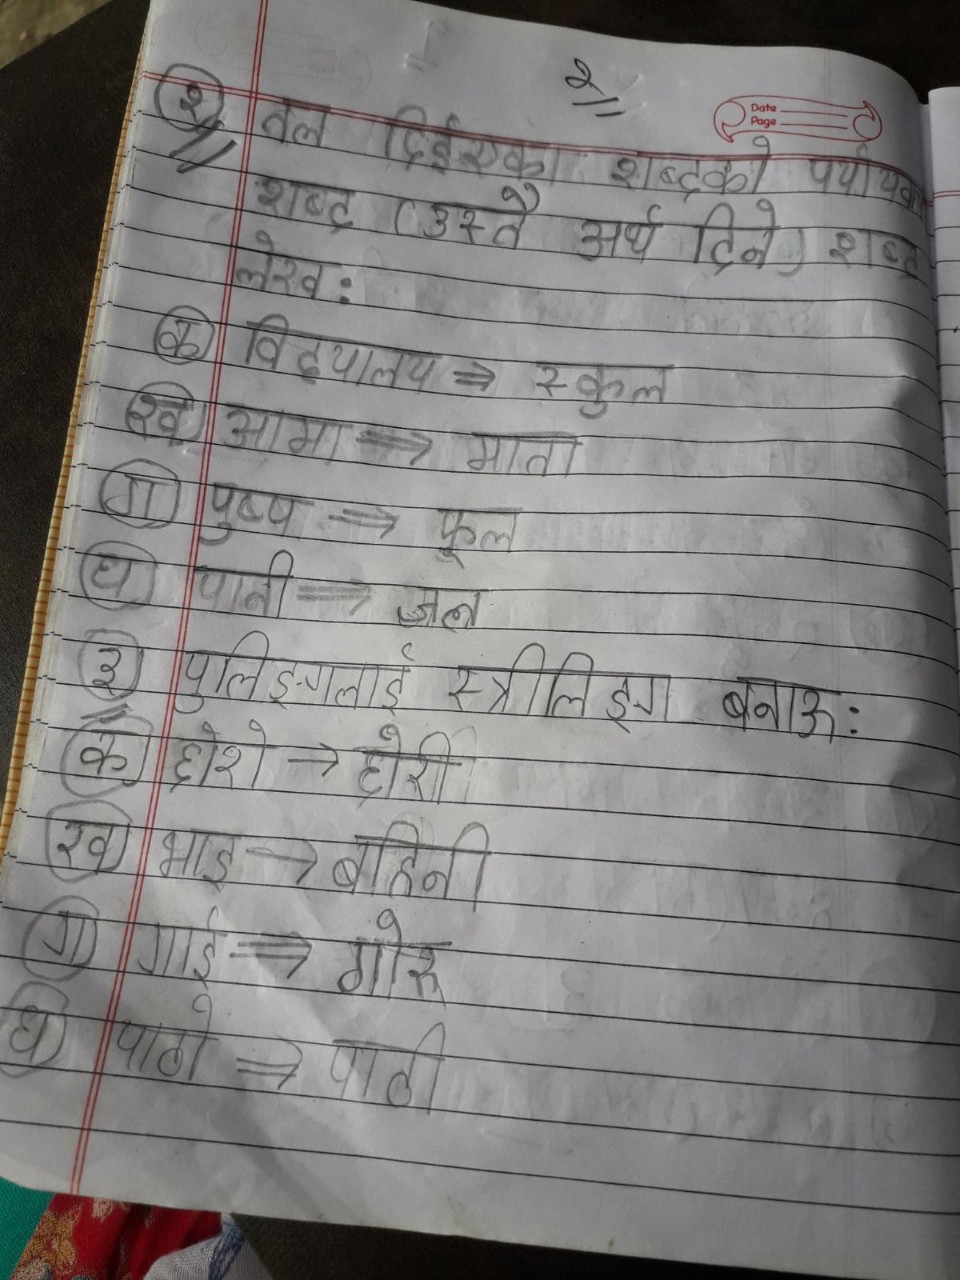 २
Date
Page
२ तल दिईएका शब्दको पर्यायवा
शब्द (उस्तै अर्थ दिने) शब्द
लेख:
क विद्यालय ⇒ स्कुल
ख आमा ⇒ माता
ग पुष्प ⇒ फूल
घ पानी ⇒ जल
३ पुलिङ्गलाई स्त्रीलिङ्ग बनाऊ:
क छोरो → छोरी
ख भाइ → बहिनी
ग गाई ⇒ गोरू
घ पाठो ⇒ पाठी